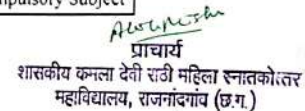 mpulsory Subject
प्राचार्य
शासकीय कमला देवी राठी महिला स्नातकोत्तर
महाविद्यालय, राजनांदगांव (छ.ग.)